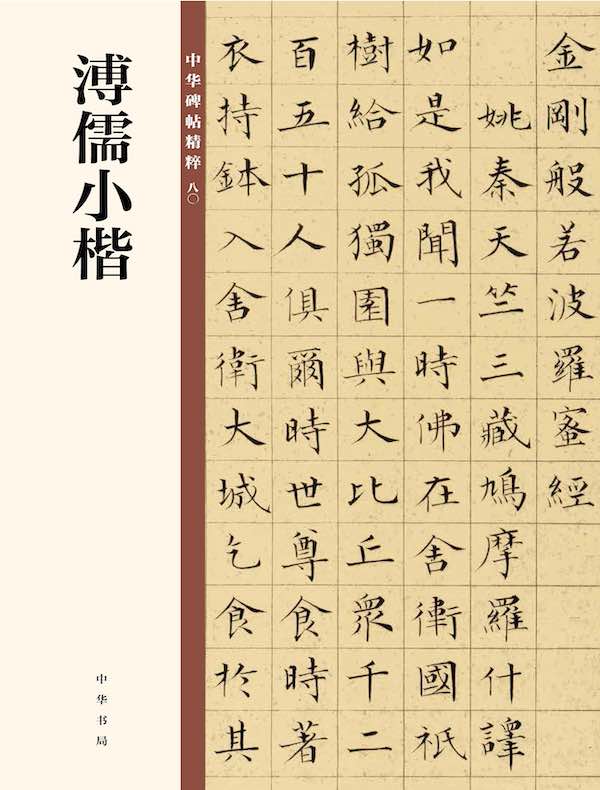 溥儒小楷
中华碑帖精粹 八〇
中华书局
金剛般若波羅蜜經
姚秦天竺三藏鳩摩羅什譯
如是我聞一時佛在舍衛國祇
樹給孤獨園與大比丘眾千二
百五十人俱爾時世尊食時著
衣持鉢入舍衛大城乞食於其